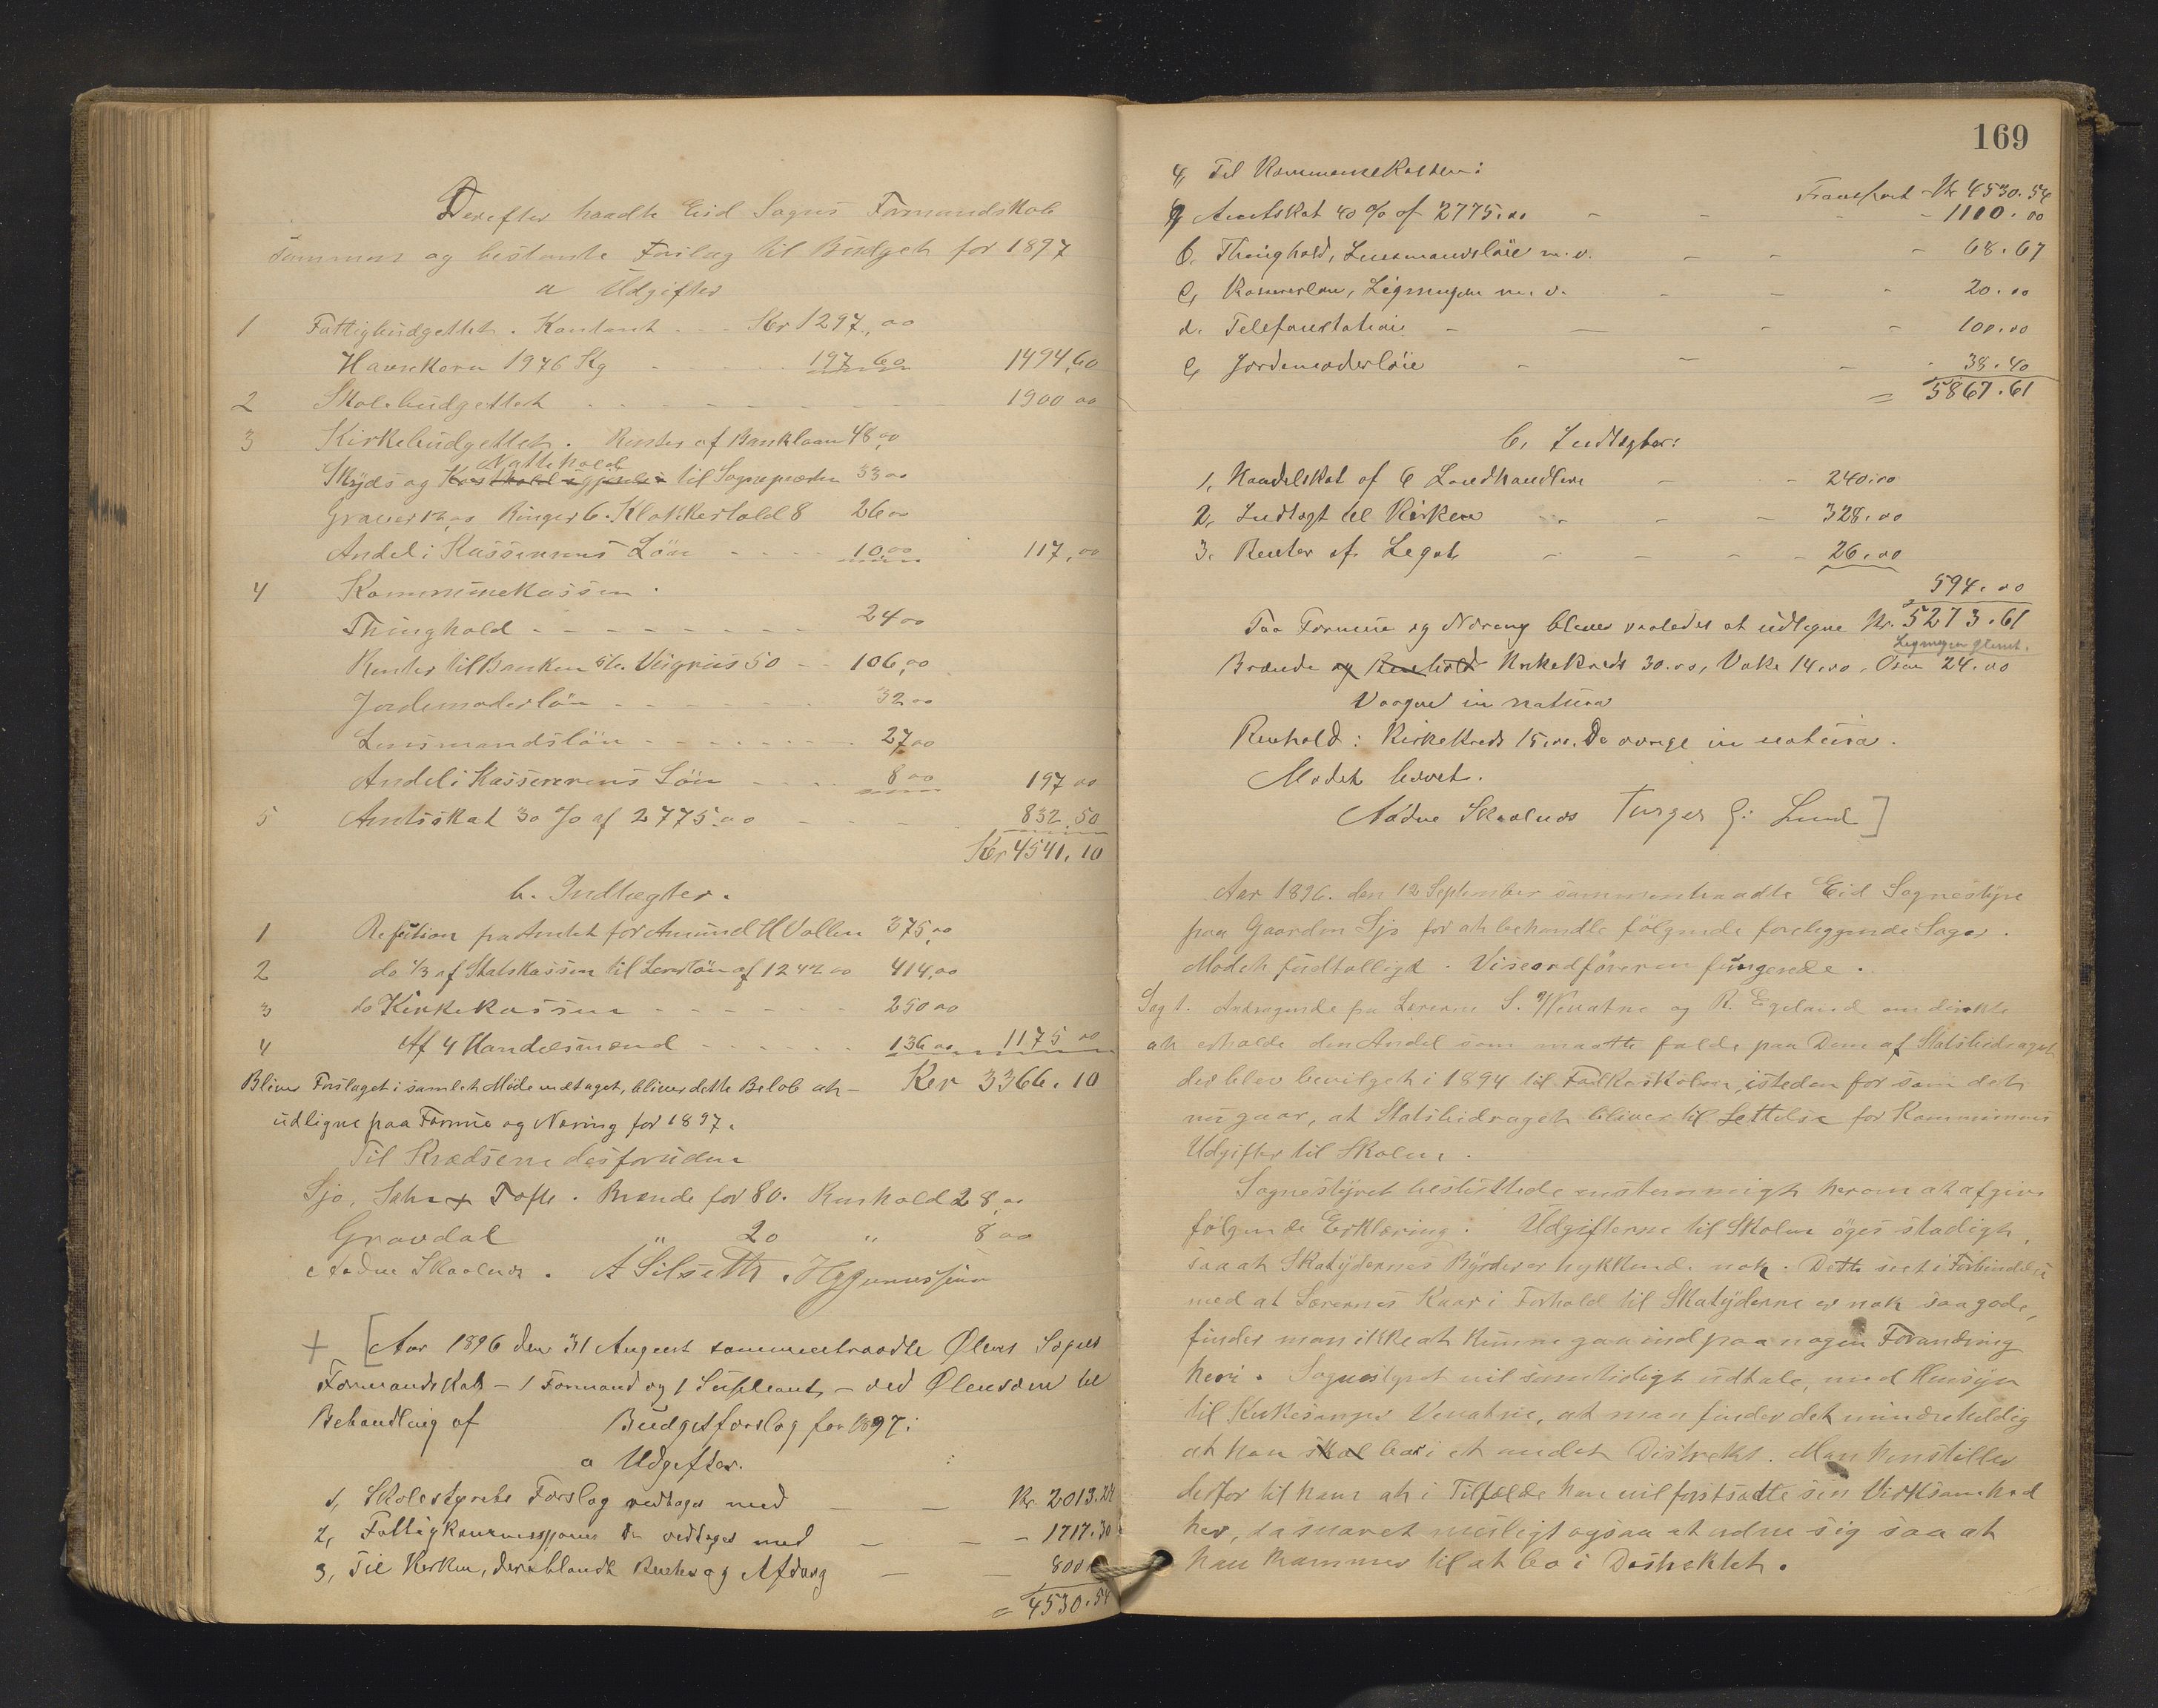 Derefter traadte Eid Sogns Formandskab
sammen og bestemte Forslag til Budget for 1897
a Udgifter
1 Fattigbudgettet. Kontant - - - Kr 1297,00
Havrekorn 1976 Kg - - - - - 197,60 1494,60
2 Skolebudgettet - - - - - - - - 1900 00
3 Kirkebudgettet. Renter af Banklaan 48,00
Nattehold
Skyds og til Sognepræsten 33 00
Graver 12,00 Ringer 6. Klokkerhold 8 26 00
Andel i Kassererens Løn - - - - 10,00 117,00
4 Kommunekassen.
Thinghold - - - - - - - - 24 00
Renter til Banken 56. Vigrius 50 - - 106,00
Jordemoderløn - - - - - - 32 00
Lensmandsløn - - - - - - 27 00
Andel i Kassererens Løn - - - - 8 00 197 00
5 Amtsskat 30 % af 2775.00 - - - - 832.50
Kr 4541.10
b. Indtægter.
1 Refusion fra Amtet for Amund H Vollen 375,00
2 do 1/3 af Statskassen til Lærerløn af 1242 00 414,00
3 do Kirkekassen - - - - - - 250 00
4 Af 4 Handelsmænd - - - - - - 136 00 1175 00
Bliver Forslaget i samlet Møde vedtaget, bliver dette Beløb at - Kr 3366.10
udligne paa Formue og Næring for 1897.
Til Kredsene desforuden
Sjo, Sæbø + Tofte. Brænde for 80. Renhold 28,00
Gravdal " 20 " 8 00
Aadne Skaalnes. A Silseth.
+ [Aar 1896 den 31 August sammentraadte Ølens Sogns
Formandskab - 1 Formand og 1 Supleant - ved Ølensøren til
Behandling af Budgetforslag for 1897:
a Udgifter.
1, Skolestyrets Forslag vedtages med — — Kr. 2013.24
2, Fattigkommissjonens Do vedtages med — — - 1717.30
3, Til Kirken, deriblandt Renter og Afdrag — — 800
= 4530.54
169
4, Til Kommunekassen:
Transport Kr 4530.54
a Amtskat 40 % af 2775.00 - - - - 1110.00
b. Thinghold, Lensmandsløn m. v. - - - 68.67
c, Kassererløn, Ligningen m. v. - - - 20.00
d. Telefonstation - — - - 100.00
e, Jordemoderløn - - - - 38.40
= 5867.61
b, Indtægter:
1, Handelskat af 6 Landhandlere - - 240.00
2, Indtægt til Kirken - - - 328.00
3. Renter af Legat - - - - 26.00
594.00
Paa Formue og Næring bliver saaledes at udligne Kr. 5273.61
Brænde og Renhold Kirkekreds 30.00, Vake 14.00, Øsen 24.00
Vaagen in natura
Renhold: Kirkekreds 15.00. De øvrige in natura.
Mødet hævet.
Aadne Skaalnes Torger G: Lund]
Aar 1896. den 12 September sammentraadte Eid Sognestyre
paa Gaarden Sjo for at behandle følgende foreliggende Sager.
Mødet fuldtalligt. Viseordføreren fungerede.
Sag 1. Andragende fra Lærerne S. Venatne og R. Egeland om direkte
at erholde den Andel som maatte falde paa Dem af Statsbidraget
der blev bevilget i 1894 til Folkeskolen, isteden for som det
nu gaar, at Statsbidraget bliver til Lettelse for Kommunens
Udgifter til Skolen.
Sognestyret besluttede enstemmigt herom at afgive
følgende Erklæring: Udgifterne til Skolen øges stadigt,
saa at Skatyderenes Byrder er trykkende nok. Dette set i Forbindelse
med at Lærernes Kaar i Forhold til Skatyderne er nok saa gode,
finder man ikke at kunne gaa ind paa nogen Forandring
heri. Sognestyret vil samtidigt udtale, med Hensyn
til Kirkesanger Venatne, at man finder det mindre heldig
at han skal bo i et andet Distrekt. Man henstiller
derfor til ham at i Tilfælde han vil fortsætte sin Virksomhed
her, da snarest muligt ogsaa at ordne sig saa at
han kommer til at bo i Destrektet.